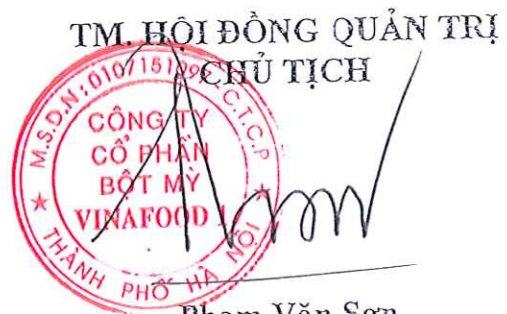 TM. HỘI ĐỒNG QUẢN TRỊ
CHỦ TỊCH
M.S.D.N: 0107151 C.T.C.P
CÔNG TY
CỔ PHẦN
BỘT MỲ
VINAFOOD 1
THÀNH PHỐ HÀ NỘI
Phạm Văn Sơn